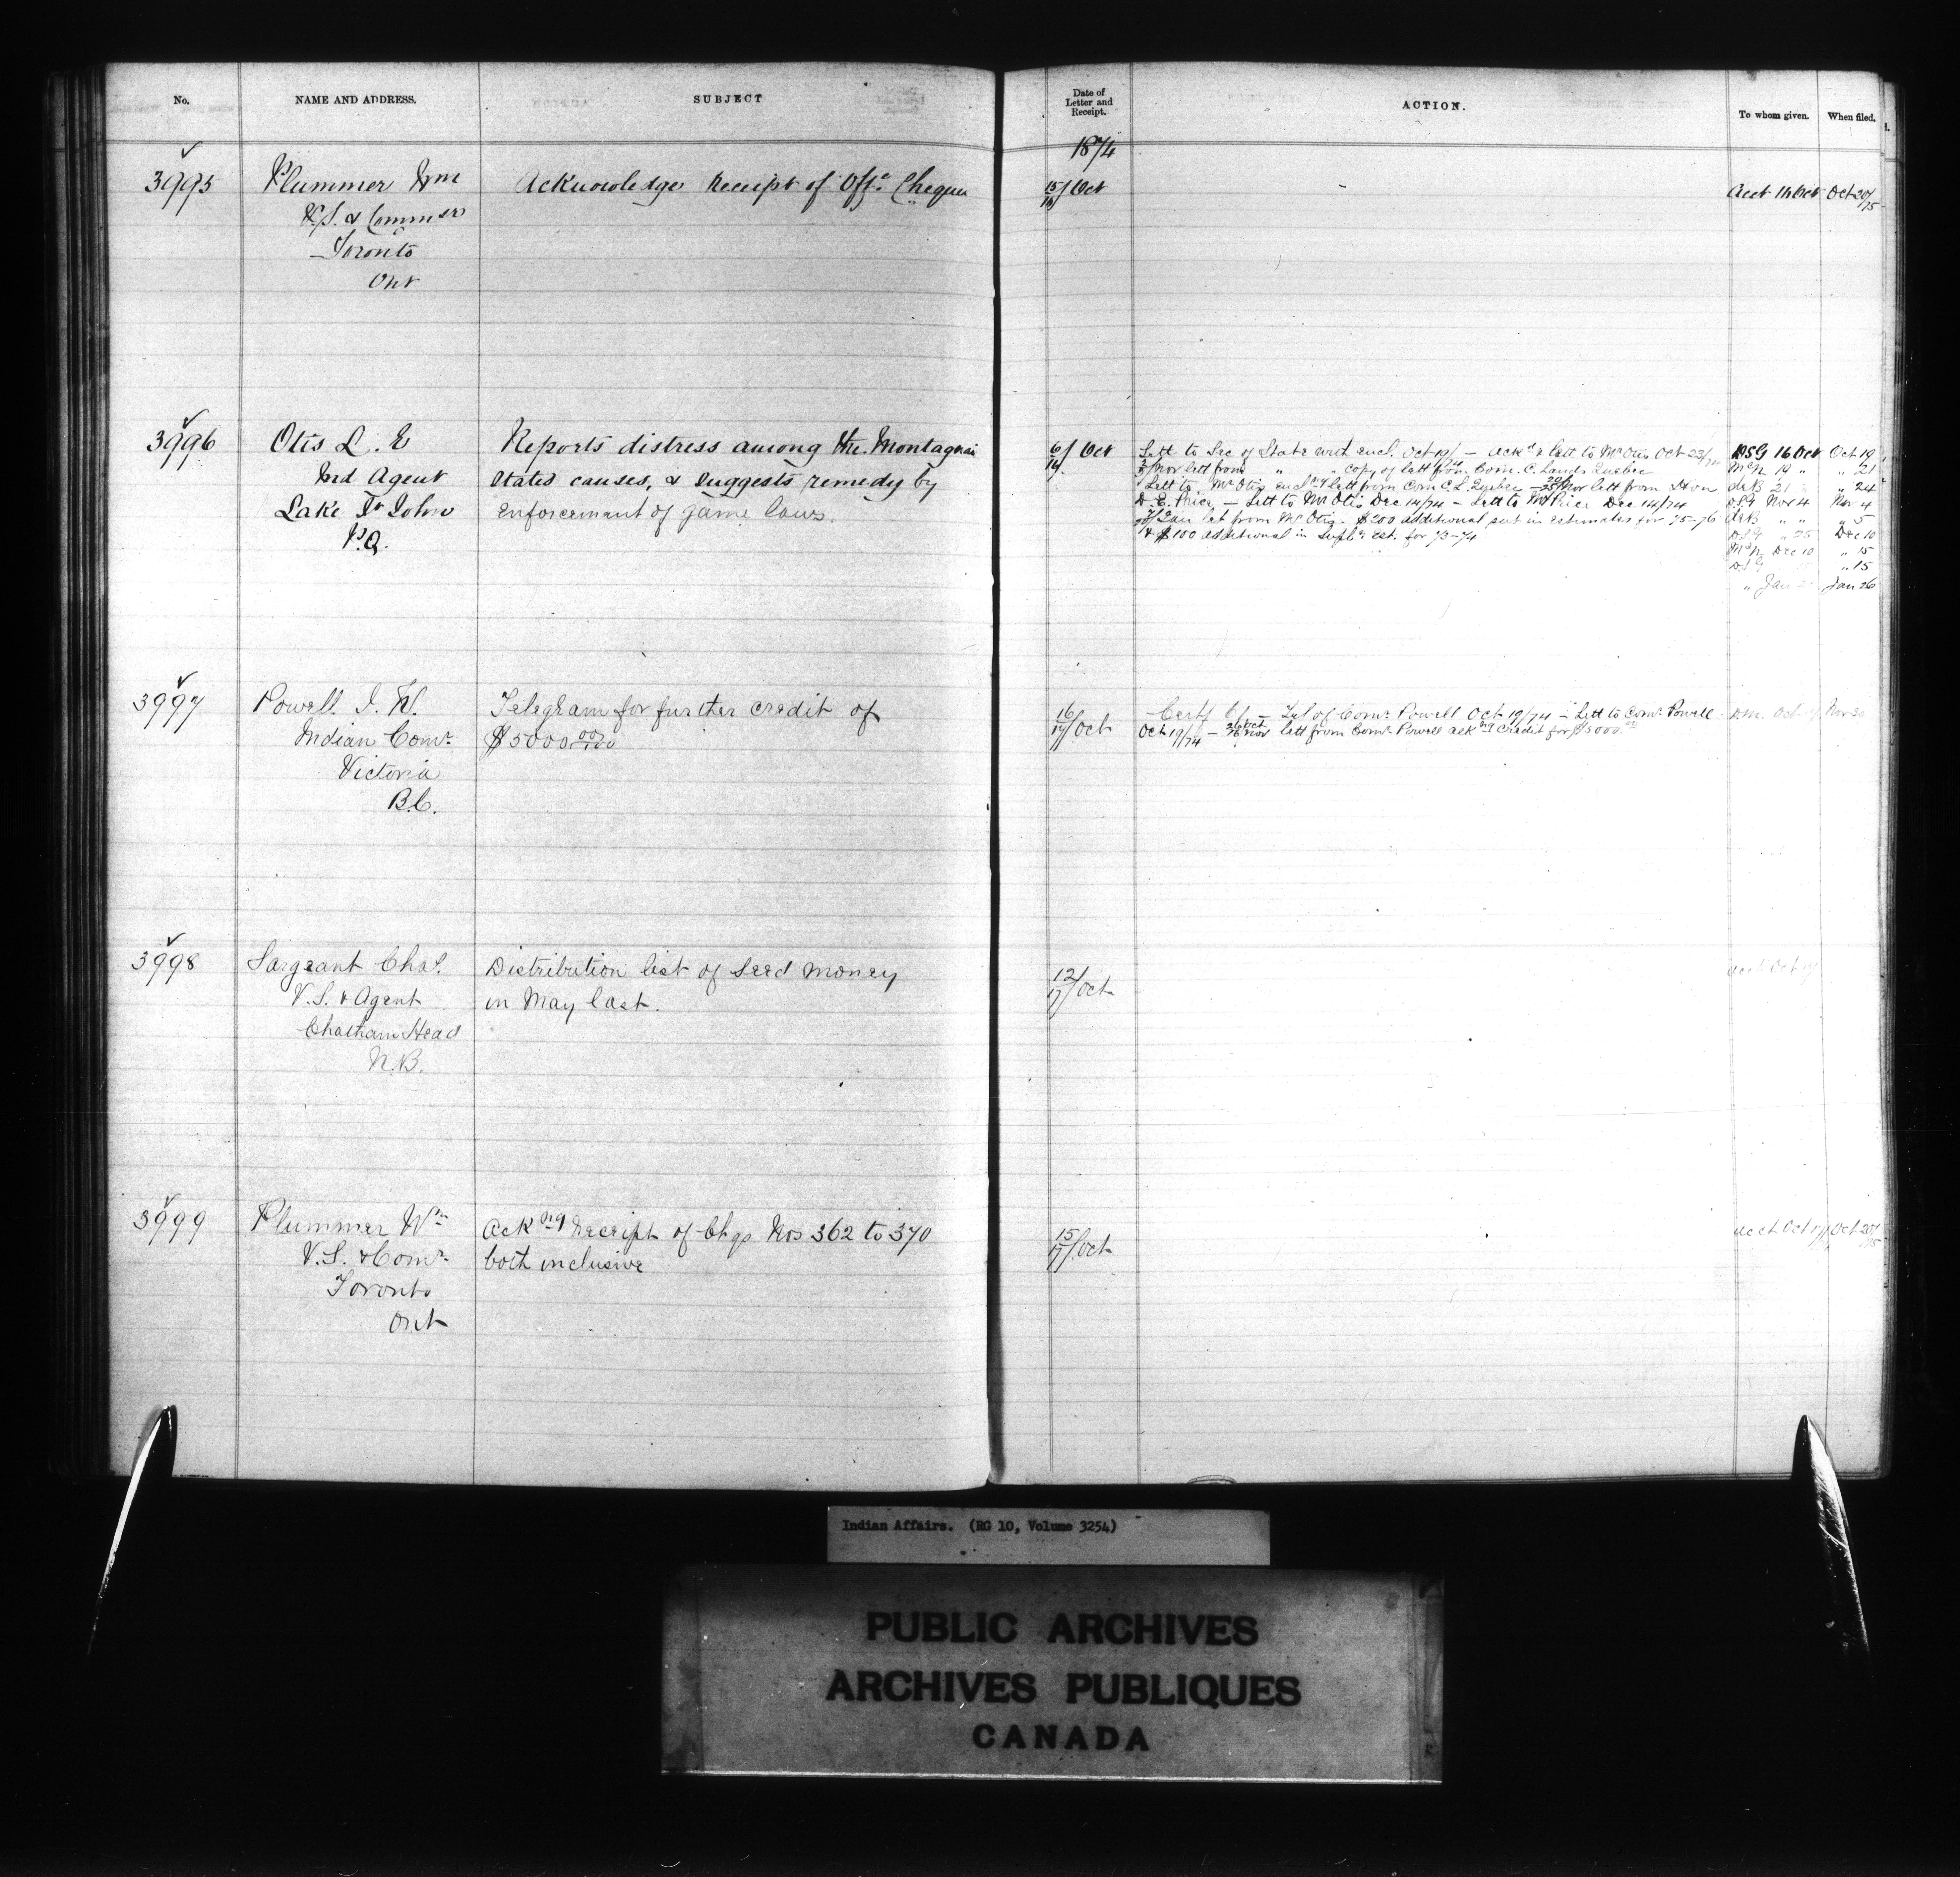 No.
NAME AND ADDRESS.
SUBJECT
Date of
Letter and
Receipt.
ACTION.
To whom given.
When filed.
1874
3995
Plummer Wm
V.S. & Commsr
Toronto
Ont
Acknowledges Receipt of Offe. Cheques
15/16 Oct
Acct 16 Oct
Oct 20/75
3996
Otis L. E
Ind Agent
Lake St John
P.Q.
Reports distress among the Montagnai
States causes, & suggests remedy by
enforcement of game laws.
6/16 Oct
Lett to Sec of State with encl. Oct 19/ — ackd & lett to Mr Otis Oct 22/74
3/ Nov lett from " " copy of lett from Com. C. Lands Quebec
Lett to Mr Otis encl'g lett from Com C. L. Quebec — Nov lett from Hon
D. E. Price — Lett to Mr Otis Dec 14/74 — Lett to Mr Price Dec 14/74
Jan let from Mr Otis. $200 additional put in estimates for 75-76
& $100 additional in Supl'y est. for 73-74
DSG 16 Oct Oct 19
McN 19 " " 21
A&B 21 " " 24
DSG Nov 4 Nov 4
A&B " " " 5
DSG " 25 Dec 10
McN Dec 10 " 15
DSG " 15
" Jan Jan 26
3997
Powell. I. W.
Indian Comr.
Victoria
B.C.
Telegram for further credit of
$5000 00/100
16/17 Oct
Certf 6/ — Tel of Comr Powell Oct 19/74 — Lett to Comr Powell
Oct 19/74 — 26 Oct Nov lett from Comr Powell ack'ng Credit for $5000.00
Oct Nov 30
3998
Sargeant Chas.
V.S. & Agent
Chatham Head
N.B.
Distribution list of Seed money
in May last.
12/17 Oct
Acct Oct 17
3999
Plummer Wm
V.S. & Comr.
Toronto
Ont
Ack'ng Receipt of Chqs Nos 362 to 370
both inclusive
15/17 Oct
Acct Oct 17/ Oct 20/75
Indian Affairs. (RG 10, Volume 3254)
PUBLIC ARCHIVES
ARCHIVES PUBLIQUES
CANADA